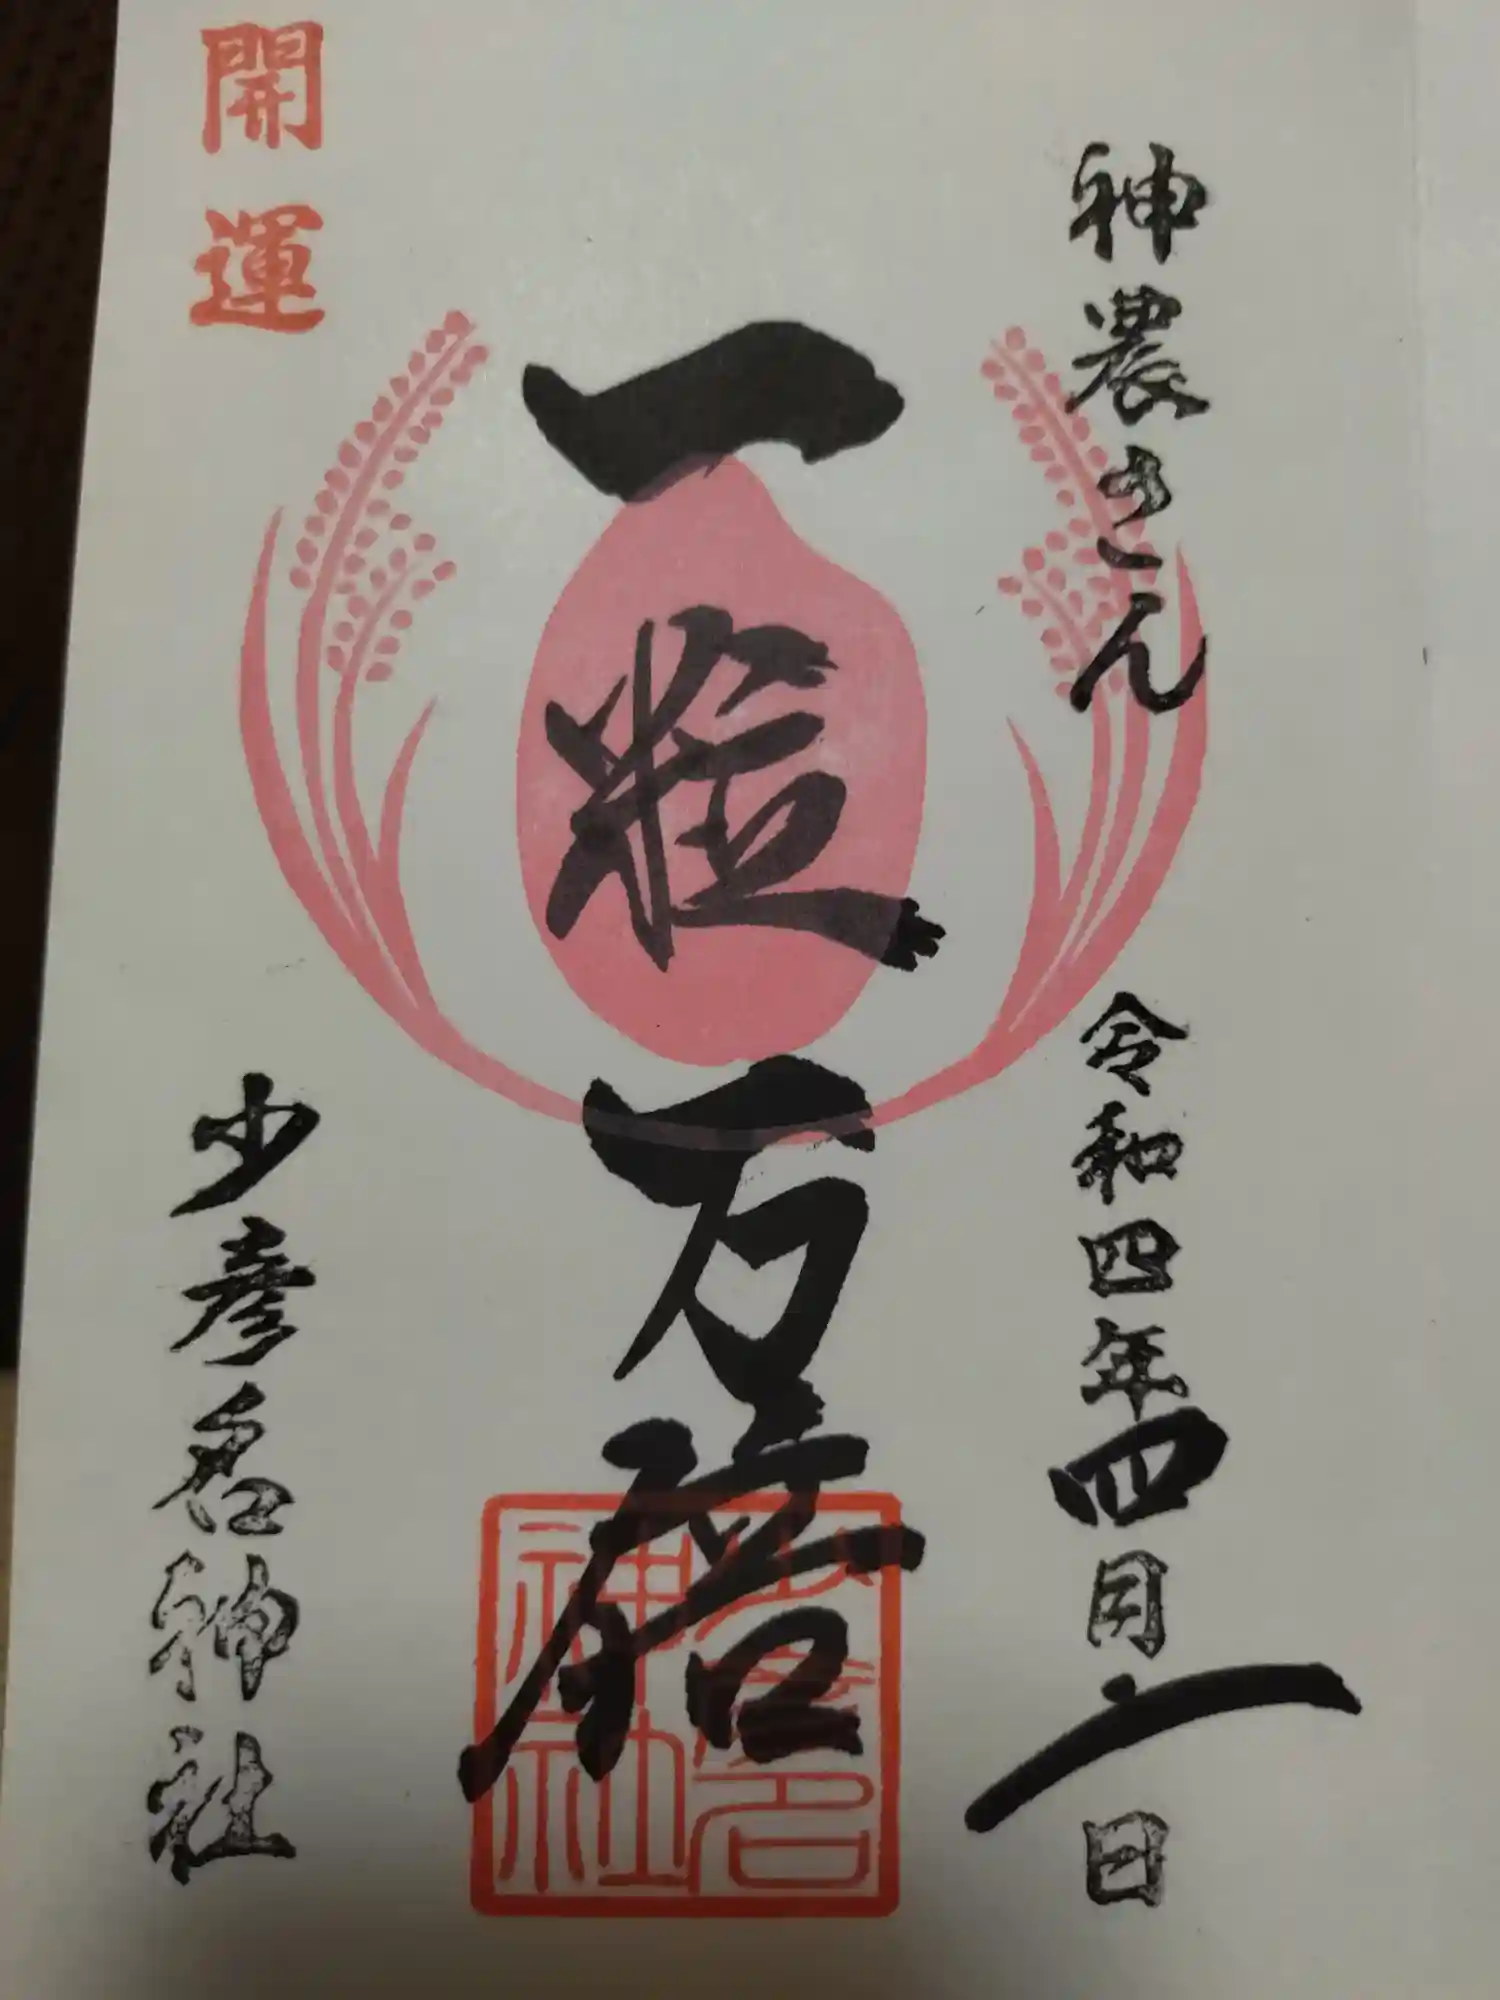 神農さん
令和四年四月一日
一粒万倍
開運
少彦名神社
少彦名
神社